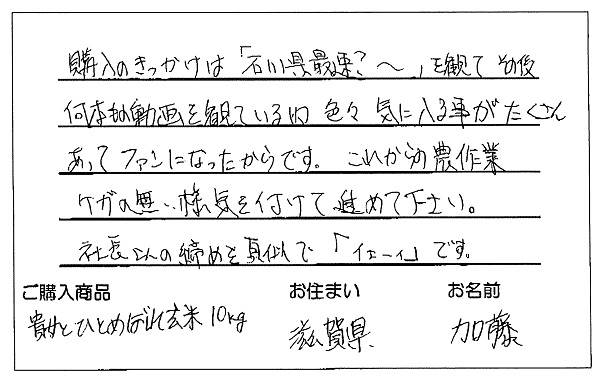 購入のきっかけは「石川県最速?〜」を観て その後
何本も動画を観ている内 色々 気に入る事がたくさん
あってファンになったからです。これからの農作業
ケガの無い様気を付けて進めて下さい。
社長さんの締めを真似て「イェーィ」です。
ご購入商品 お住まい お名前
ひとめぼれ玄米10kg 滋賀県 加藤